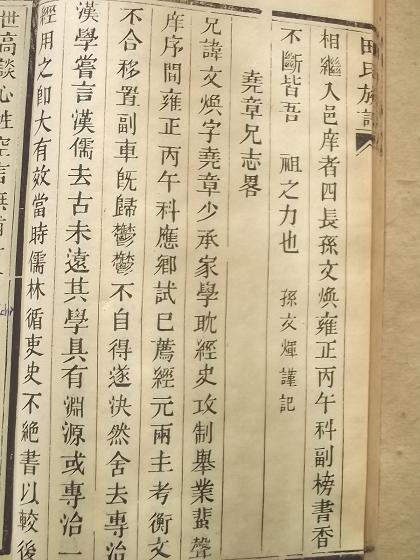 田氏族譜
相繼入邑庠者四長孫文煥雍正丙午科副榜書香
不斷皆吾 祖之力也 孫文煇謹記
堯章兄志畧
兄諱文煥字堯章少承家學耽經史攻制舉業蜚聲
庠序間雍正丙午科應鄉試已薦經元兩主考衡文
不合移置副車旣歸鬱鬱不自得遂決然舍去專治
漢學嘗言漢儒去古未遠其學具有淵源或專治一
經用之卽大有效當時儒林循吏史不絕書以較後
世高談心性空言無